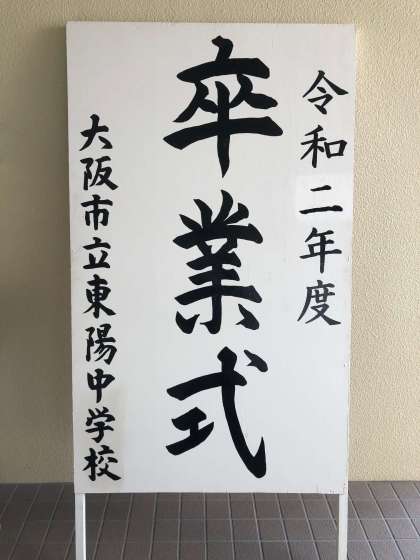 令和二年度
卒業式
大阪市立東陽中学校